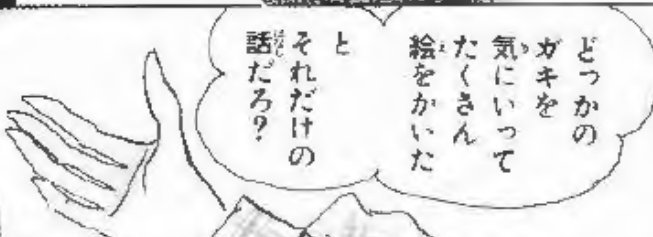 どっかの
ガキを
気にいって
たくさん
絵をかいた
と
それだけの
話だろ?